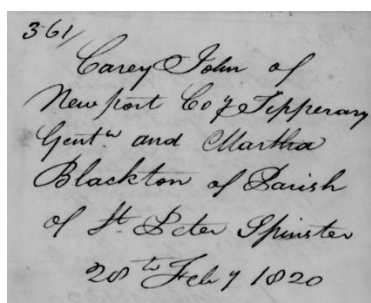 361/
Carey John of
Newport Co. of Tipperary
Gentn. and Martha
Blackton of Parish
of St. Peter Spinster
28th Feby 1820